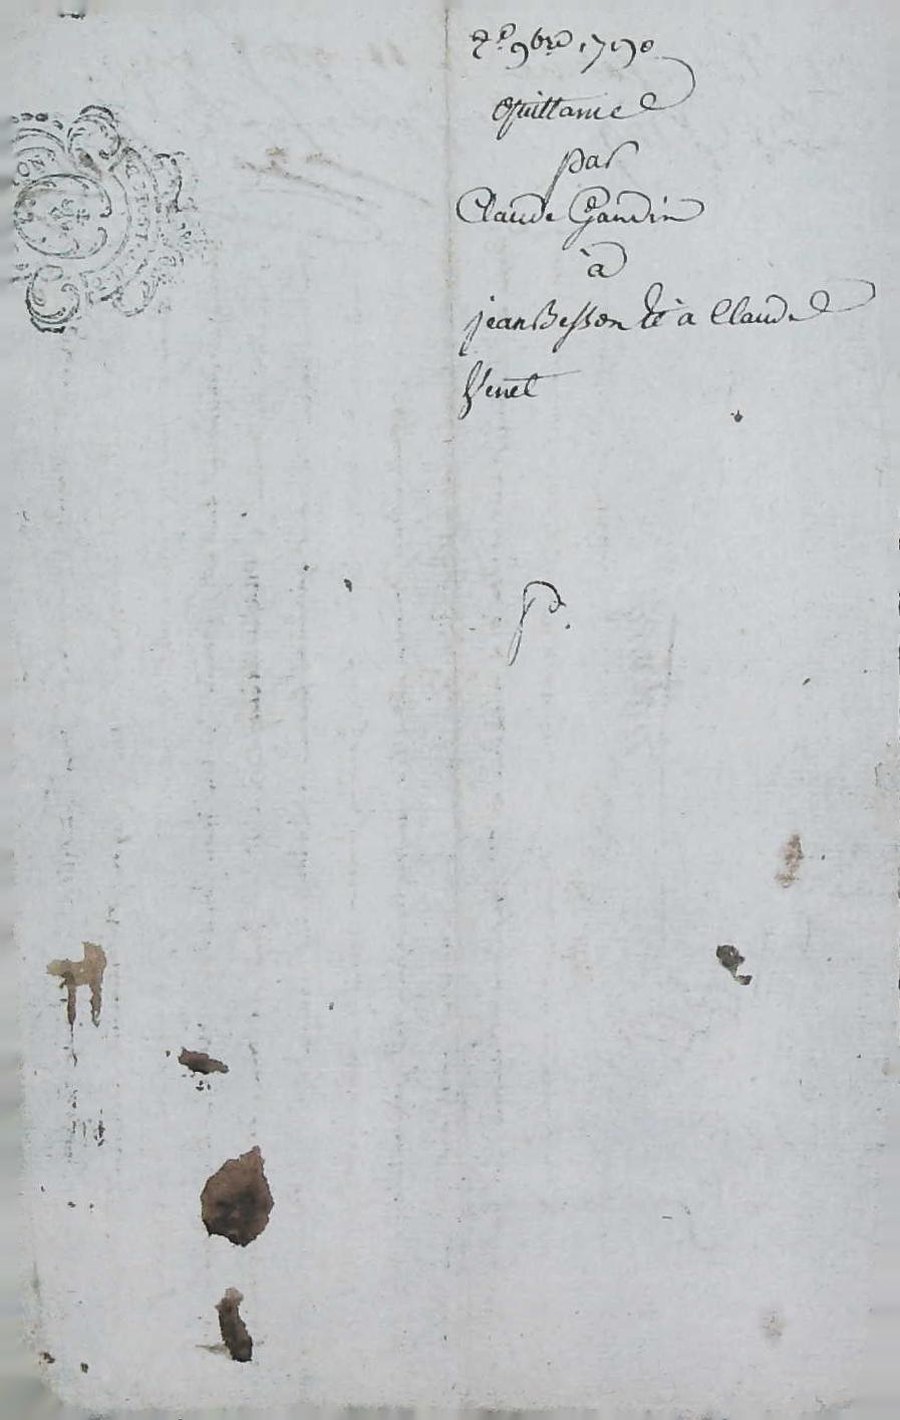 2e 9bre 1790
Quittance
par
Claude Gaudin
à
jean Besson & à Claude
Venet